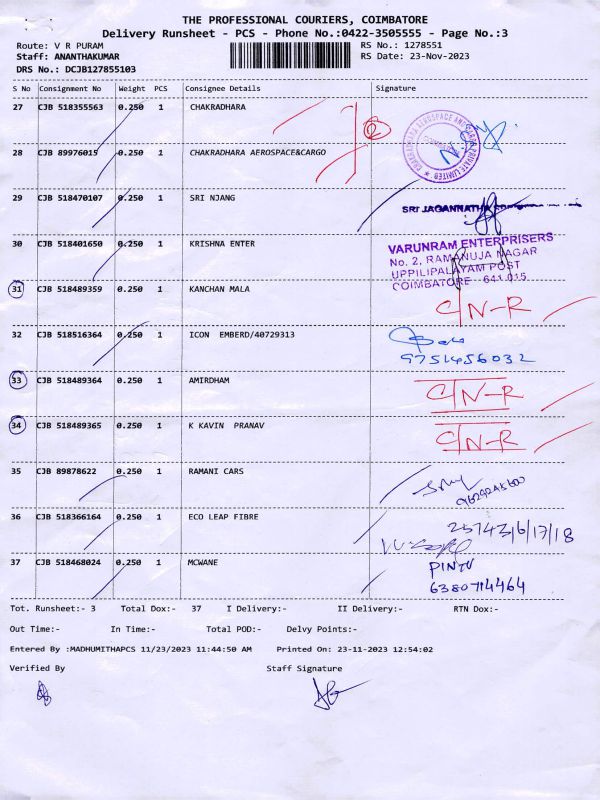 THE PROFESSIONAL COURIERS, COIMBATORE
Delivery Runsheet - PCS - Phone No.:0422-3505555 - Page No.:3
Route: V R PURAM RS No.: 1278551
Staff: ANANTHAKUMAR RS Date: 23-Nov-2023
DRS No.: DCJB127855103
S No Consignment No Weight PCS Consignee Details Signature
27 CJB 518355563 0.250 1 CHAKRADHARA
28 CJB 89976015 0.250 1 CHAKRADHARA AEROSPACE&CARGO
29 CJB 518470107 0.250 1 SRI NJANG SRI JAGANNATHA
30 CJB 518401650 0.250 1 KRISHNA ENTER VARUNRAM ENTERPRISERS
No. 2, RAMANUJA NAGAR
UPPILIPALAYAM POST
COIMBATORE - 641 015
31 CJB 518489359 0.250 1 KANCHAN MALA C/N-R
32 CJB 518516364 0.250 1 ICON EMBERD/40729313
9751456032
33 CJB 518489364 0.250 1 AMIRDHAM C/N-R
34 CJB 518489365 0.250 1 K KAVIN PRANAV C/N-R
35 CJB 89878622 0.250 1 RAMANI CARS
36 CJB 518366164 0.250 1 ECO LEAP FIBRE 25743/6/17/18
37 CJB 518468024 0.250 1 MCWANE PINTU
6380714464
Tot. Runsheet:- 3 Total Dox:- 37 I Delivery:- II Delivery:- RTN Dox:-
Out Time:- In Time:- Total POD:- Delvy Points:-
Entered By :MADHUMITHAPCS 11/23/2023 11:44:50 AM Printed On: 23-11-2023 12:54:02
Verified By Staff Signature